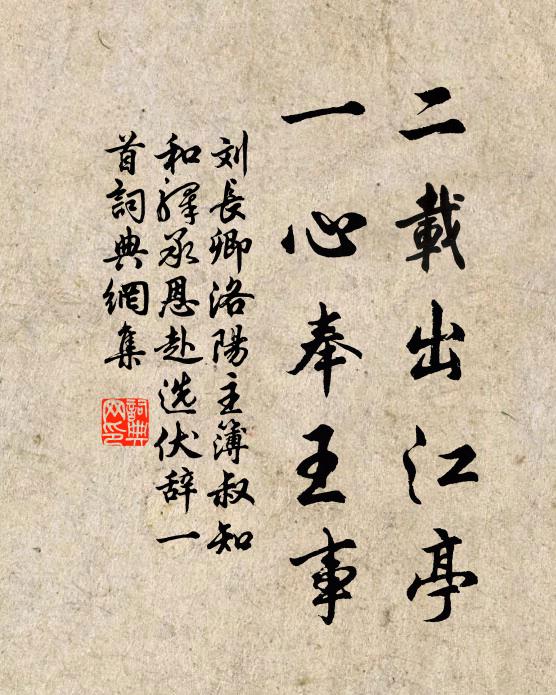 二載出江亭
一心奉王事
刘長卿洛陽主簿叔知
和驛承恩赴选伏辞一
首詞典網集
詞典
网印